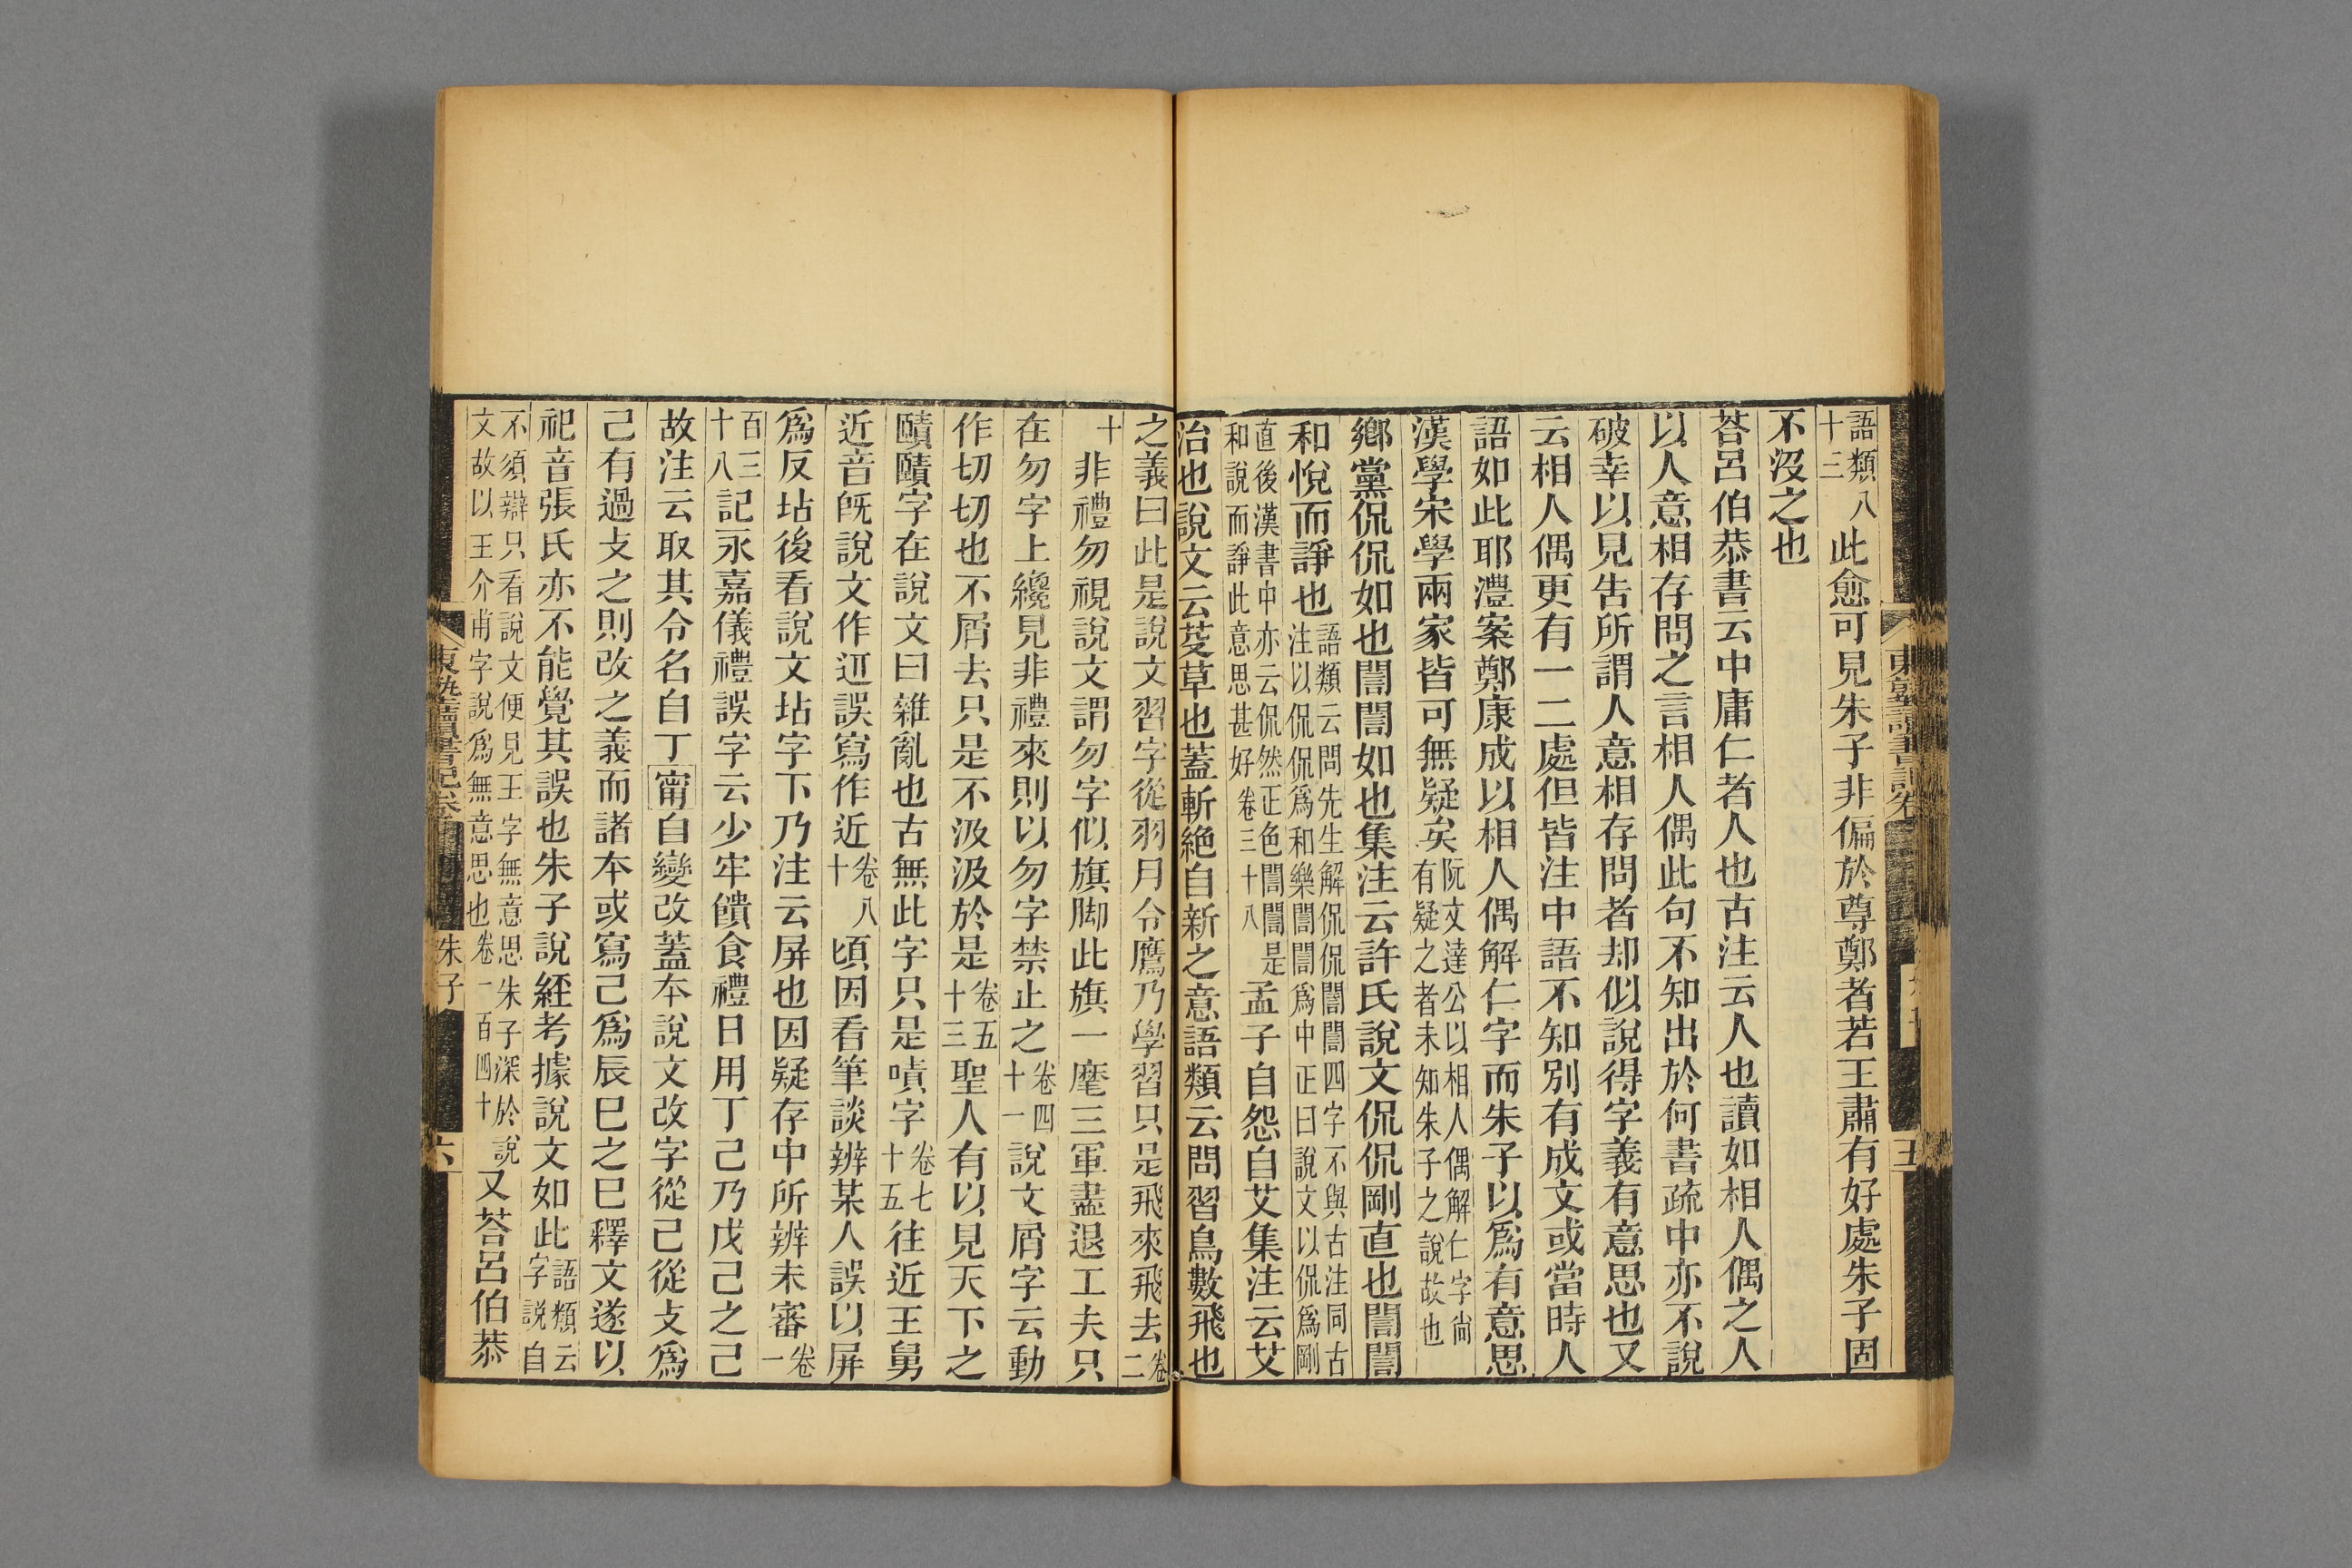 語類八十三此愈可見朱子非偏於尊鄭者若王肅有好處朱子固
不沒之也
荅呂伯恭書云中庸仁者人也古注云人也讀如相人偶之人
以人意相存問之言相人偶此句不知出於何書疏中亦不說
破幸以見告所謂人意相存問者却似說得字義有意思也又
云相人偶更有一二處但皆注中語不知別有成文或當時人
語如此耶澧案鄭康成以相人偶解仁字而朱子以爲有意思
漢學宋學兩家皆可無疑矣阮文達公以相人偶解仁字尙有疑之者未知朱子之說故也
鄉黨侃侃如也誾誾如也集注云許氏說文侃侃剛直也誾誾
和悅而諍也語類云問先生解侃侃誾誾四字不與古注同古注以侃侃爲和樂誾誾爲中正曰說文以侃爲剛
直後漢書中亦云侃然正色誾誾是和說而諍此意思甚好卷三十八孟子自怨自艾集注云艾
治也說文云芟草也蓋斬絕自新之意語類云問習鳥數飛也
之義曰此是說文習字從羽月令鷹乃學習只是飛來飛去卷二
十非禮勿視說文謂勿字似旗脚此旗一麾三軍盡退工夫只
在勿字上纔見非禮來則以勿字禁止之卷四十一說文屑字云動
作切切也不屑去只是不汲汲於是卷五十三聖人有以見天下之
賾賾字在說文曰雜亂也古無此字只是嘖字卷七十五往近王舅
近音旣說文作䢋誤寫作近卷八十頃因看筆談辨某人誤以屏
爲反坫後看說文坫字下乃注云屏也因疑存中所辨未審卷一
百三十八記永嘉儀禮誤字云少牢饋食禮日用丁己乃戊己之己
故注云取其令名自丁甯自變改蓋夲說文改字從己從攴爲
己有過攴之則改之義而諸本或寫己爲辰巳之巳釋文遂以
祀音張氏亦不能覺其誤也朱子說經考據說文如此語類云字說自
不須辯只看說文便見王字無意思朱子深於說文故以王介甫字說爲無意思也卷一百四十又荅呂伯恭
東塾讀書記卷
朱子
六
東塾讀書記卷
五